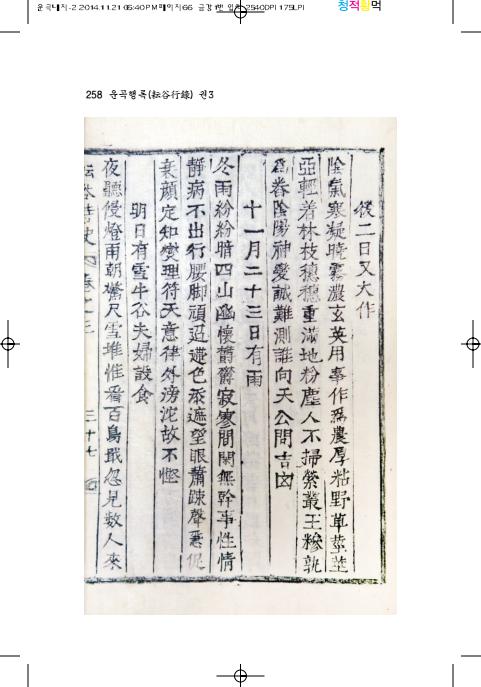 운곡내지-2 2014.11.21 05:40 PM 페이지66
2540DPI 175LPI
청적황먹
258 운곡행록(耘谷行錄) 권3
後二日又大作
陰氣寒凝曉霧濃玄英用事作爲農厚粘野草莖莖
亞輕着林枝穗穗重滿地粉塵人不掃縈叢玉糝孰
爲舂陰陽神變誠難測誰向天公問吉凶
十一月二十三日有雨
冬雨紛紛暗四山幽懷欝欝寂寥間閑無幹事性情
靜病不出行腰脚頑迢遞色添遮望眼蕭疎聲急促
衰顔定知燮理符天意律外滂沱故不慳
明日有雪牛谷夫婦設食
夜聽侵燈雨朝驚尺雪堆惟看百鳥戢忽見數人來
卷之三
三十七